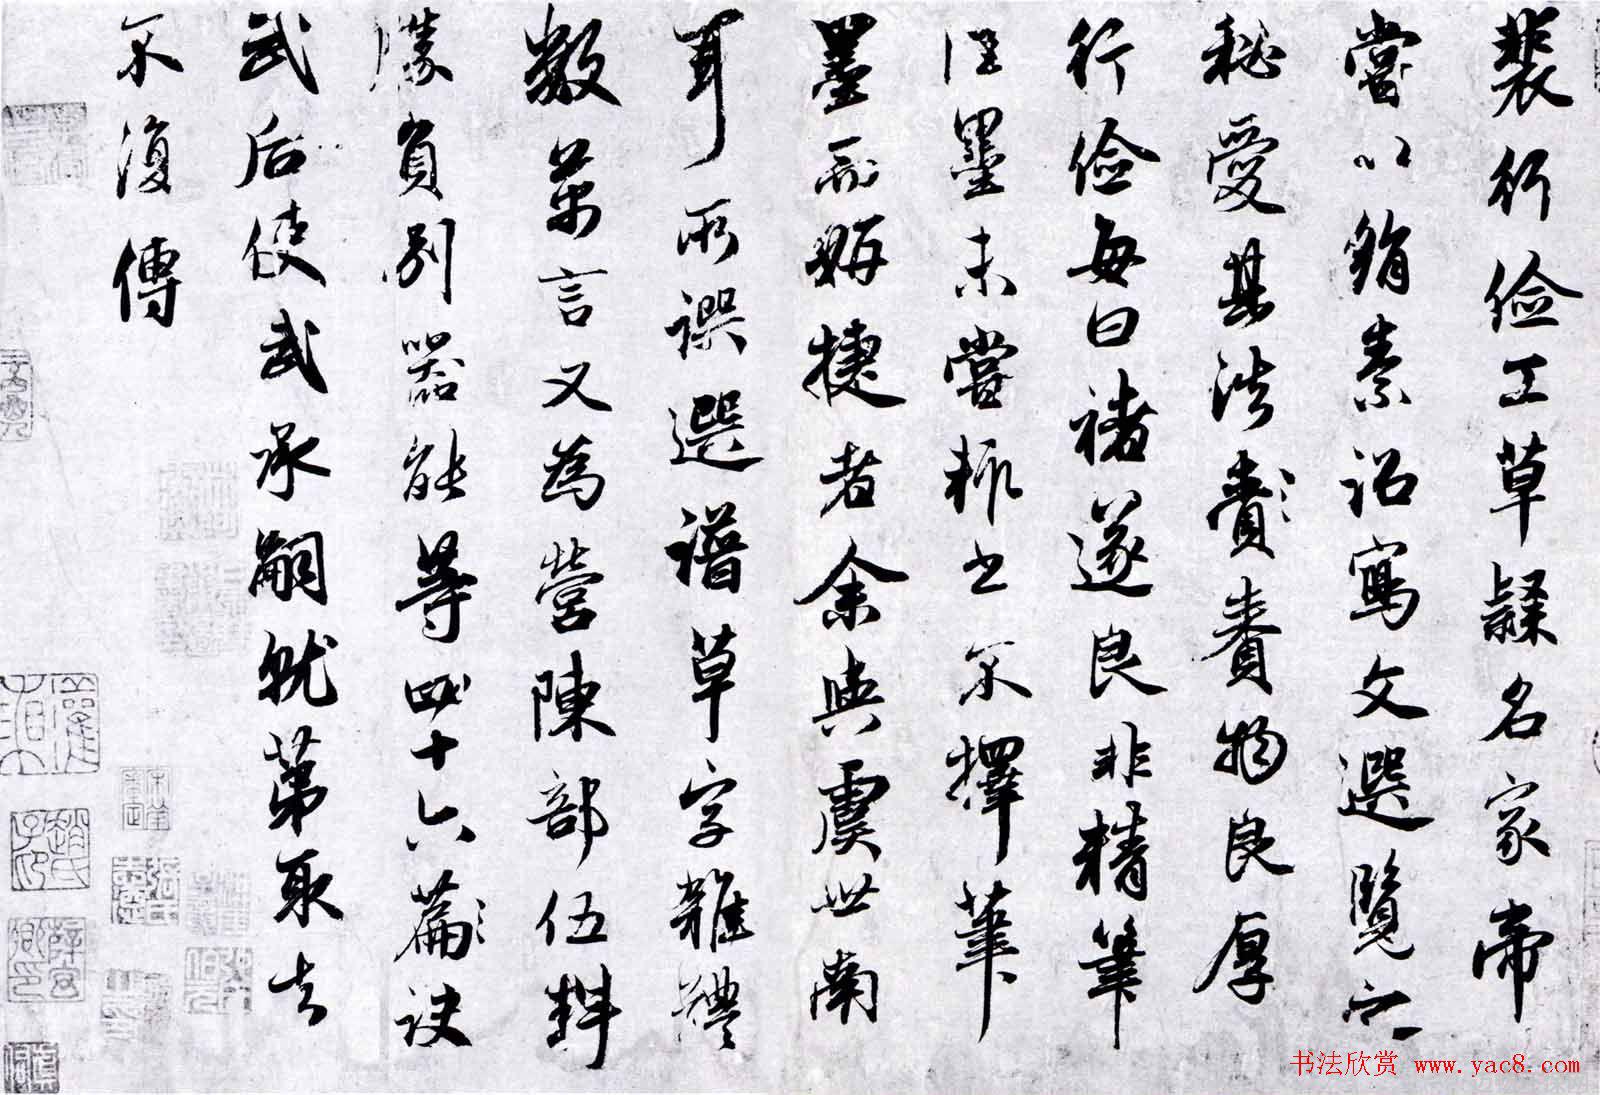 裴行俭工草隸名家帝
嘗以絹素詔寫文選覽之
秘愛其法賚賚物良厚
行俭每曰褚遂良非精筆
佳墨未嘗輙書不擇筆
墨而妍捷者余與虞世南
耳所譔選譜草字雜體
數萬言又為營陳部伍料
勝負別器能等四十六篇訣
武后使武承嗣就第取去
不復傳
书法欣赏 www.yac8.com